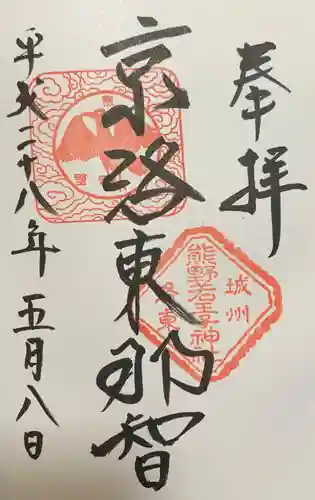 奉拝
京洛東那智
城州
熊野若王子神社
洛東
平成二十八年五月八日